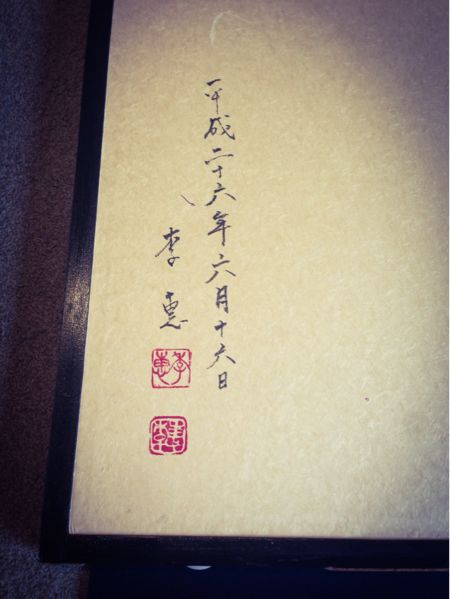 平成二十六年六月十六日
李恵